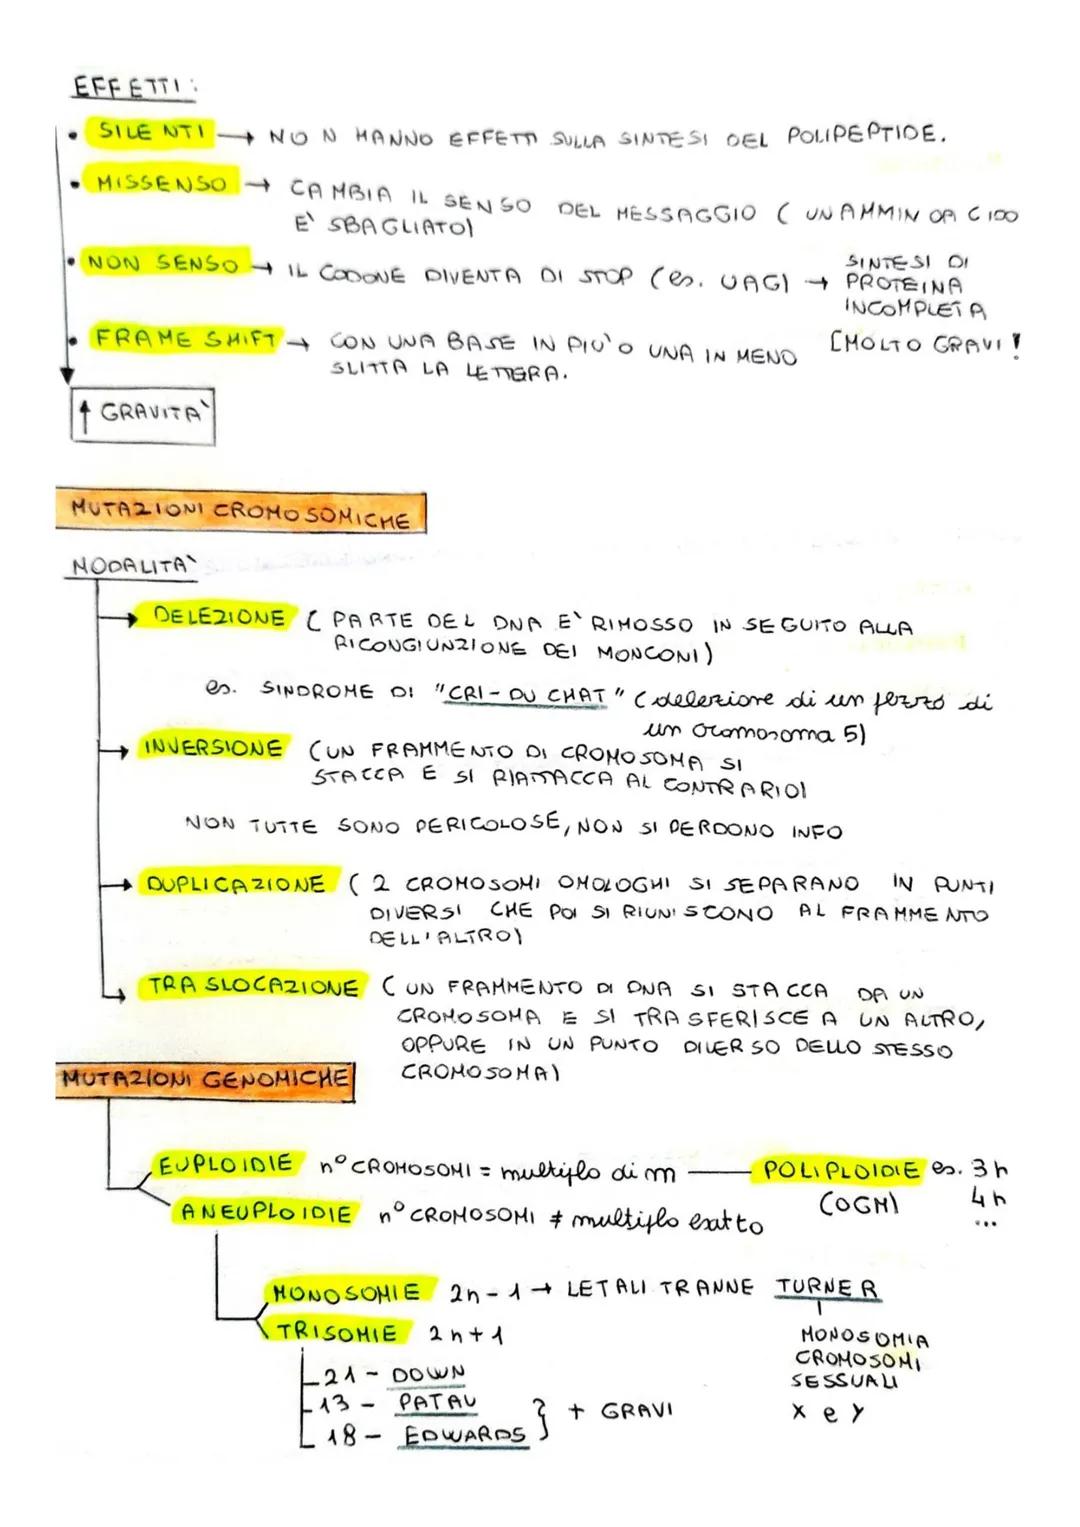 EFFETTI:
• SILENTI → NON HANNO EFFETTI SULLA SINTESI DEL POLIPEPTIDE.
• MISSENSO → CAMBIA IL SENSO DEL MESSAGGIO (UN AMMINOACIDO
E' SBAGLIATO)
• NON SENSO → IL CODONE DIVENTA DI STOP (es. UAG) → SINTESI DI
PROTEINA
INCOMPLETA
• FRAME SHIFT → CON UNA BASE IN PIU' O UNA IN MENO [MOLTO GRAVI!
SLITTA LA LETTERA.
↑ GRAVITA'
MUTAZIONI CROMOSOMICHE
MODALITA'
DELEZIONE (PARTE DEL DNA E' RIMOSSO IN SEGUITO ALLA
RICONGIUNZIONE DEI MONCONI)
es. SINDROME DI "CRI-DU CHAT" (delezione di un pezzo di
un cromosoma 5)
INVERSIONE (UN FRAMMENTO DI CROMOSOMA SI
STACCA E SI RIATTACCA AL CONTRARIO)
NON TUTTE SONO PERICOLOSE, NON SI PERDONO INFO
DUPLICAZIONE (2 CROMOSOMI OMOLOGHI SI SEPARANO IN PUNTI
DIVERSI CHE POI SI RIUNISCONO AL FRAMMENTO
DELL'ALTRO)
TRASLOCAZIONE (UN FRAMMENTO DI DNA SI STACCA DA UN
CROMOSOMA E SI TRASFERISCE A UN ALTRO,
OPPURE IN UN PUNTO DIVERSO DELLO STESSO
CROMOSOMA)
MUTAZIONI GENOMICHE
EUPLOIDIE n° CROMOSOMI = multiplo di n — POLIPLOIDIE es. 3n
(OGM) 4n
...
ANEUPLOIDIE n° CROMOSOMI ≠ multiplo esatto
MONOSOMIE 2n-1 → LETALI TRANNE TURNER
TRISOMIE 2n+1
MONOSOMIA
CROMOSOMI
SESSUALI
X e Y
21 - DOWN
13 - PATAU
18 - EDWARDS } + GRAVI